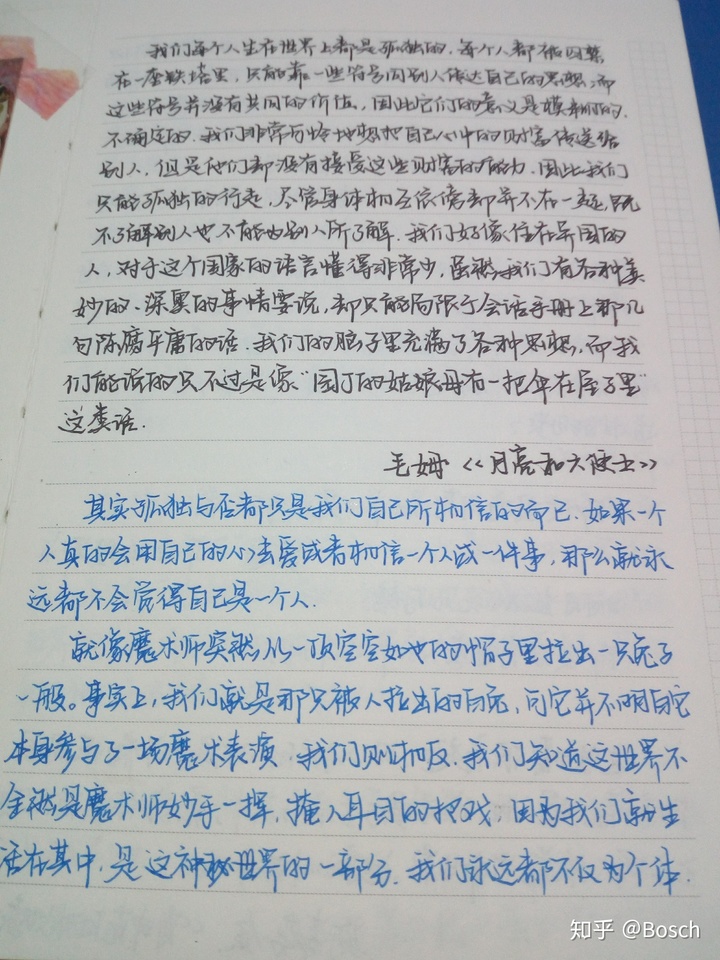 我们每个人生在世界上都是孤独的。每个人都被囚禁
在一座铁塔里,只能靠一些符号同别人传达自己的思想;而
这些符号并没有共同的价值,因此它们的意义是模糊的、
不确定的。我们非常可怜地想把自己心中的财富传送给
别人,但是他们却没有接受这些财富的能力。因此我们
只能孤独的行走,尽管身体相互依傍却并不在一起,既
不了解别人也不能为别人所了解。我们好像住在异国的
人,对于这个国家的语言懂得非常少,虽然我们有各种美
妙的、深奥的事情要说,却只能局限于会话手册上那几
句陈腐平庸的话。我们的脑子里充满了各种思想,而我
们能说的只不过是像“园丁的姑娘母有一把伞在屋子里”
这类话.
毛姆《月亮和六便士》
其实孤独与否都只是我们自己所相信的而已.如果一个
人真的会用自己的心去爱或者相信一个人或一件事,那么就永
远都不会觉得自己是一个人.
就像魔术师突然从一顶空空如也的帽子里拉出一只兔子
一般。事实上,我们就是那只被人拉出的白兔,可它并不明白它
本身参与了一场魔术表演.我们则相反.我们知道这世界不
全然是魔术师妙手一挥,掩人耳目的把戏,因为我们就生
活在其中,是这神秘世界的一部分.我们永远都不仅为个体.
知乎 @Bosch